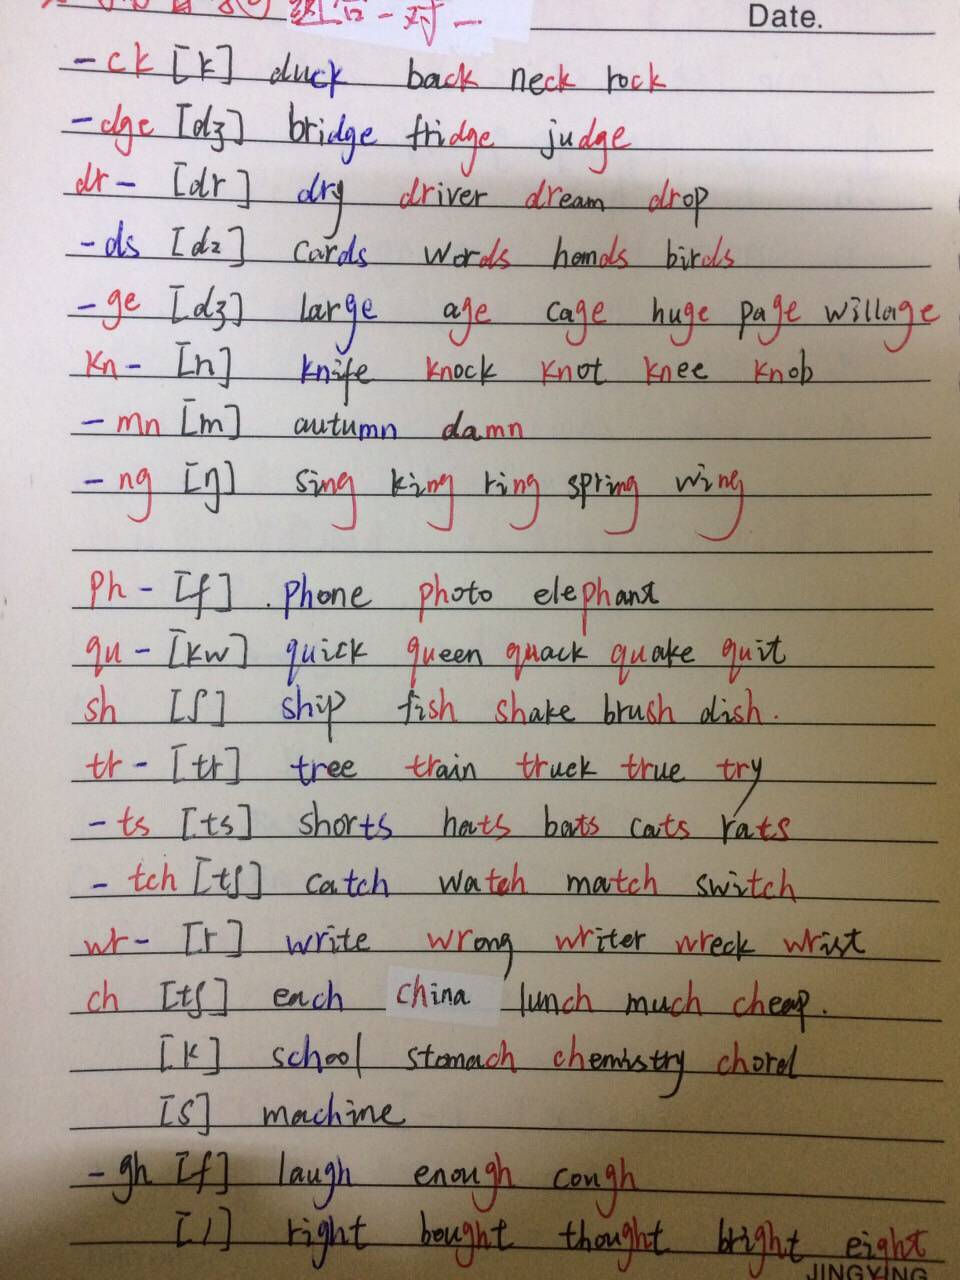 组合一对一
Date.
-ck [k] duck back neck rock
-dge [dʒ] bridge fridge judge
dr- [dr] dry driver dream drop
-ds [dz] cards words hands birds
-ge [dʒ] large age cage huge page willage
kn- [n] knife knock knot knee knob
-mn [m] autumn damn
-ng [ŋ] sing king ring spring wing
ph- [f] phone photo elephant
qu- [kw] quick queen quack quake quit
sh [ʃ] ship fish shake brush dish.
tr- [tr] tree train truck true try
-ts [ts] shorts hats bats cats rats
-tch [tʃ] catch watch match switch
wr- [r] write wrong writer wreck wrist
ch [tʃ] each china lunch much cheap.
[k] school stomach chemistry
[ʃ] machine
-gh [f] laugh enough cough
[/] right bought thought bright eight
JINGXING